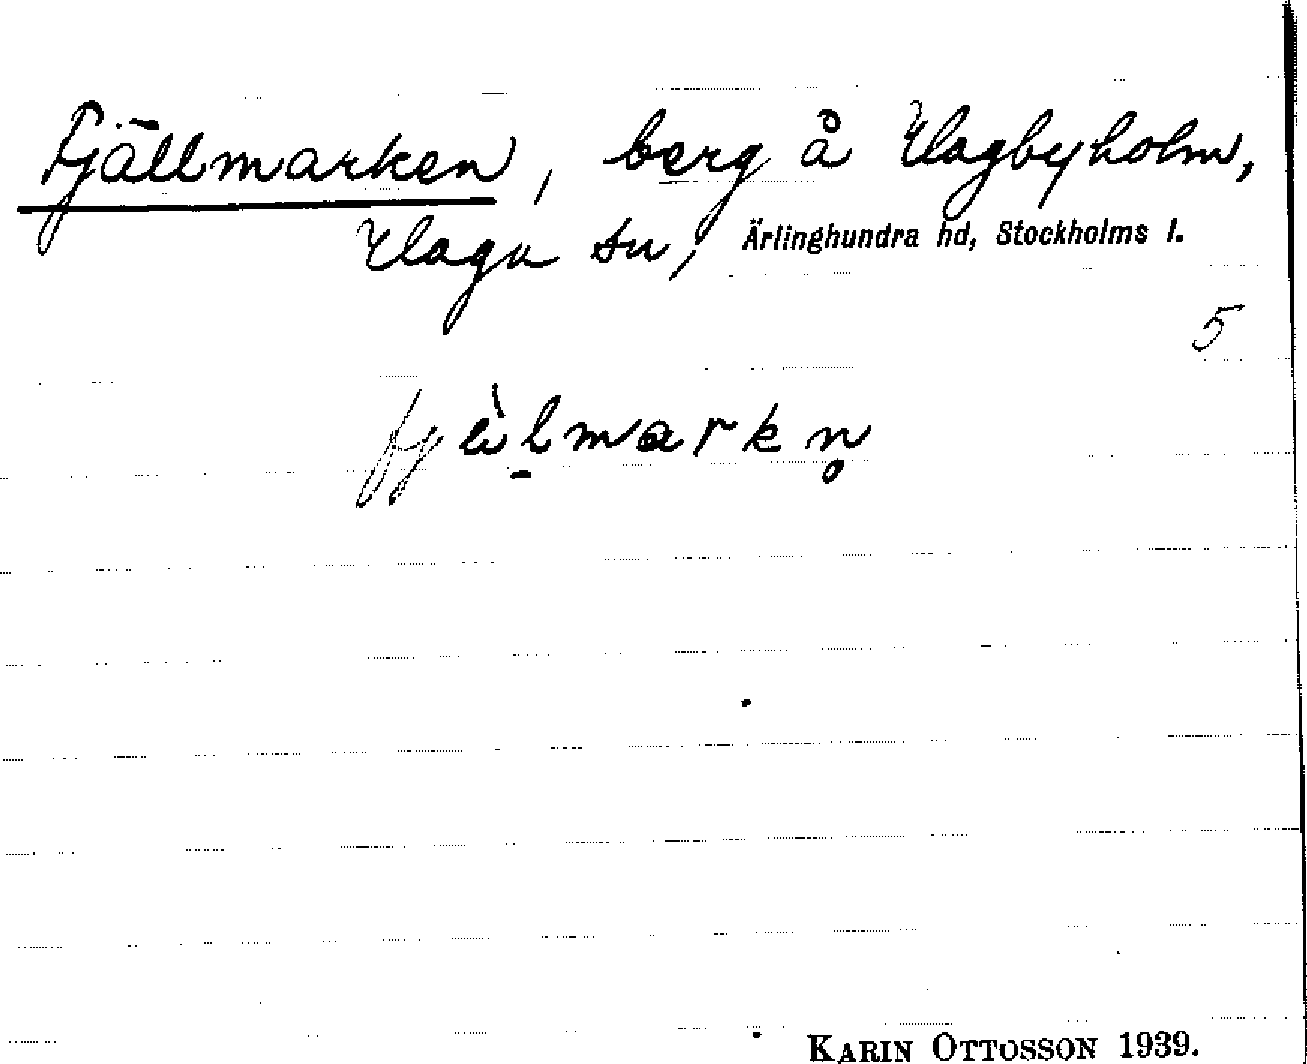 Fjällmarken, berg å Hagbyholm,
Haga sn, Ärlinghundra hd, Stockholms l.
5
fjä̀l̠markn̥
KARIN OTTOSSON 1939.